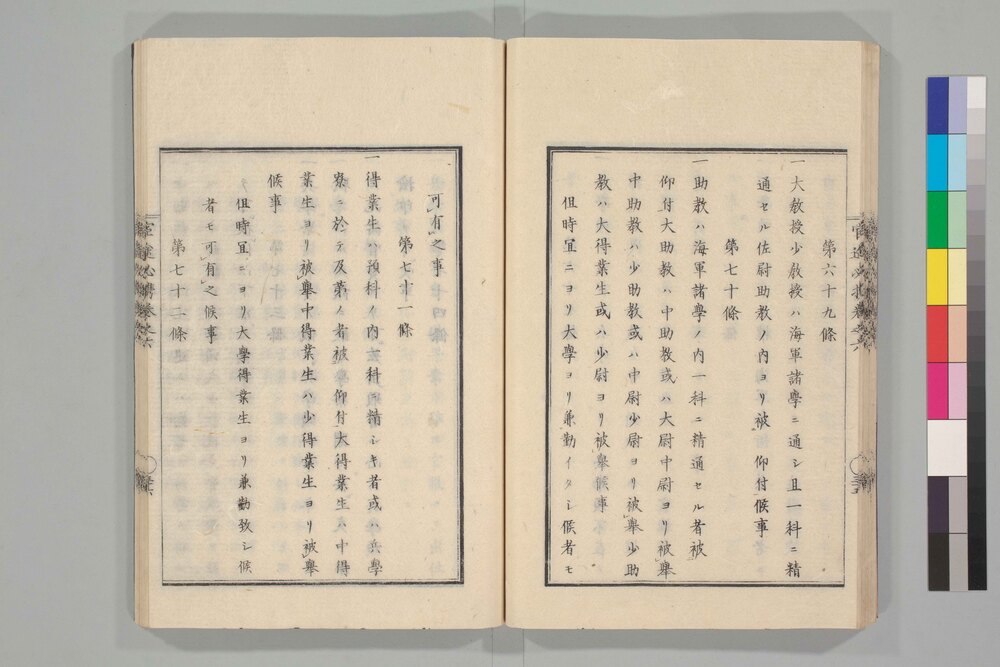 第六十九條
一大教授少教授ハ海軍諸學ニ通シ且一科ニ精
通セル佐尉助教ノ内ヨリ被 仰付候事
第七十條
一助教ハ海軍諸學ノ内一科ニ精通セル者被
仰付大助教ハ中助教或ハ大尉中尉ヨリ被擧
中助教ハ少助教或ハ中尉少尉ヨリ被擧少助
教ハ大得業生或ハ少尉ヨリ被擧候事
但時宜ニヨリ大學ヨリ兼勤イタシ候者モ
可有之事
第七十一條
一得業生ハ預科ノ内一科ニ精シキ者或ハ兵學
寮ニ於テ及第ノ者被 仰付大得業生ハ中得
業生ヨリ被擧中得業生ハ少得業生ヨリ被擧
候事
但時宜ニヨリ大學得業生ヨリ兼勤致シ候
者モ可有之候事
第七十二條